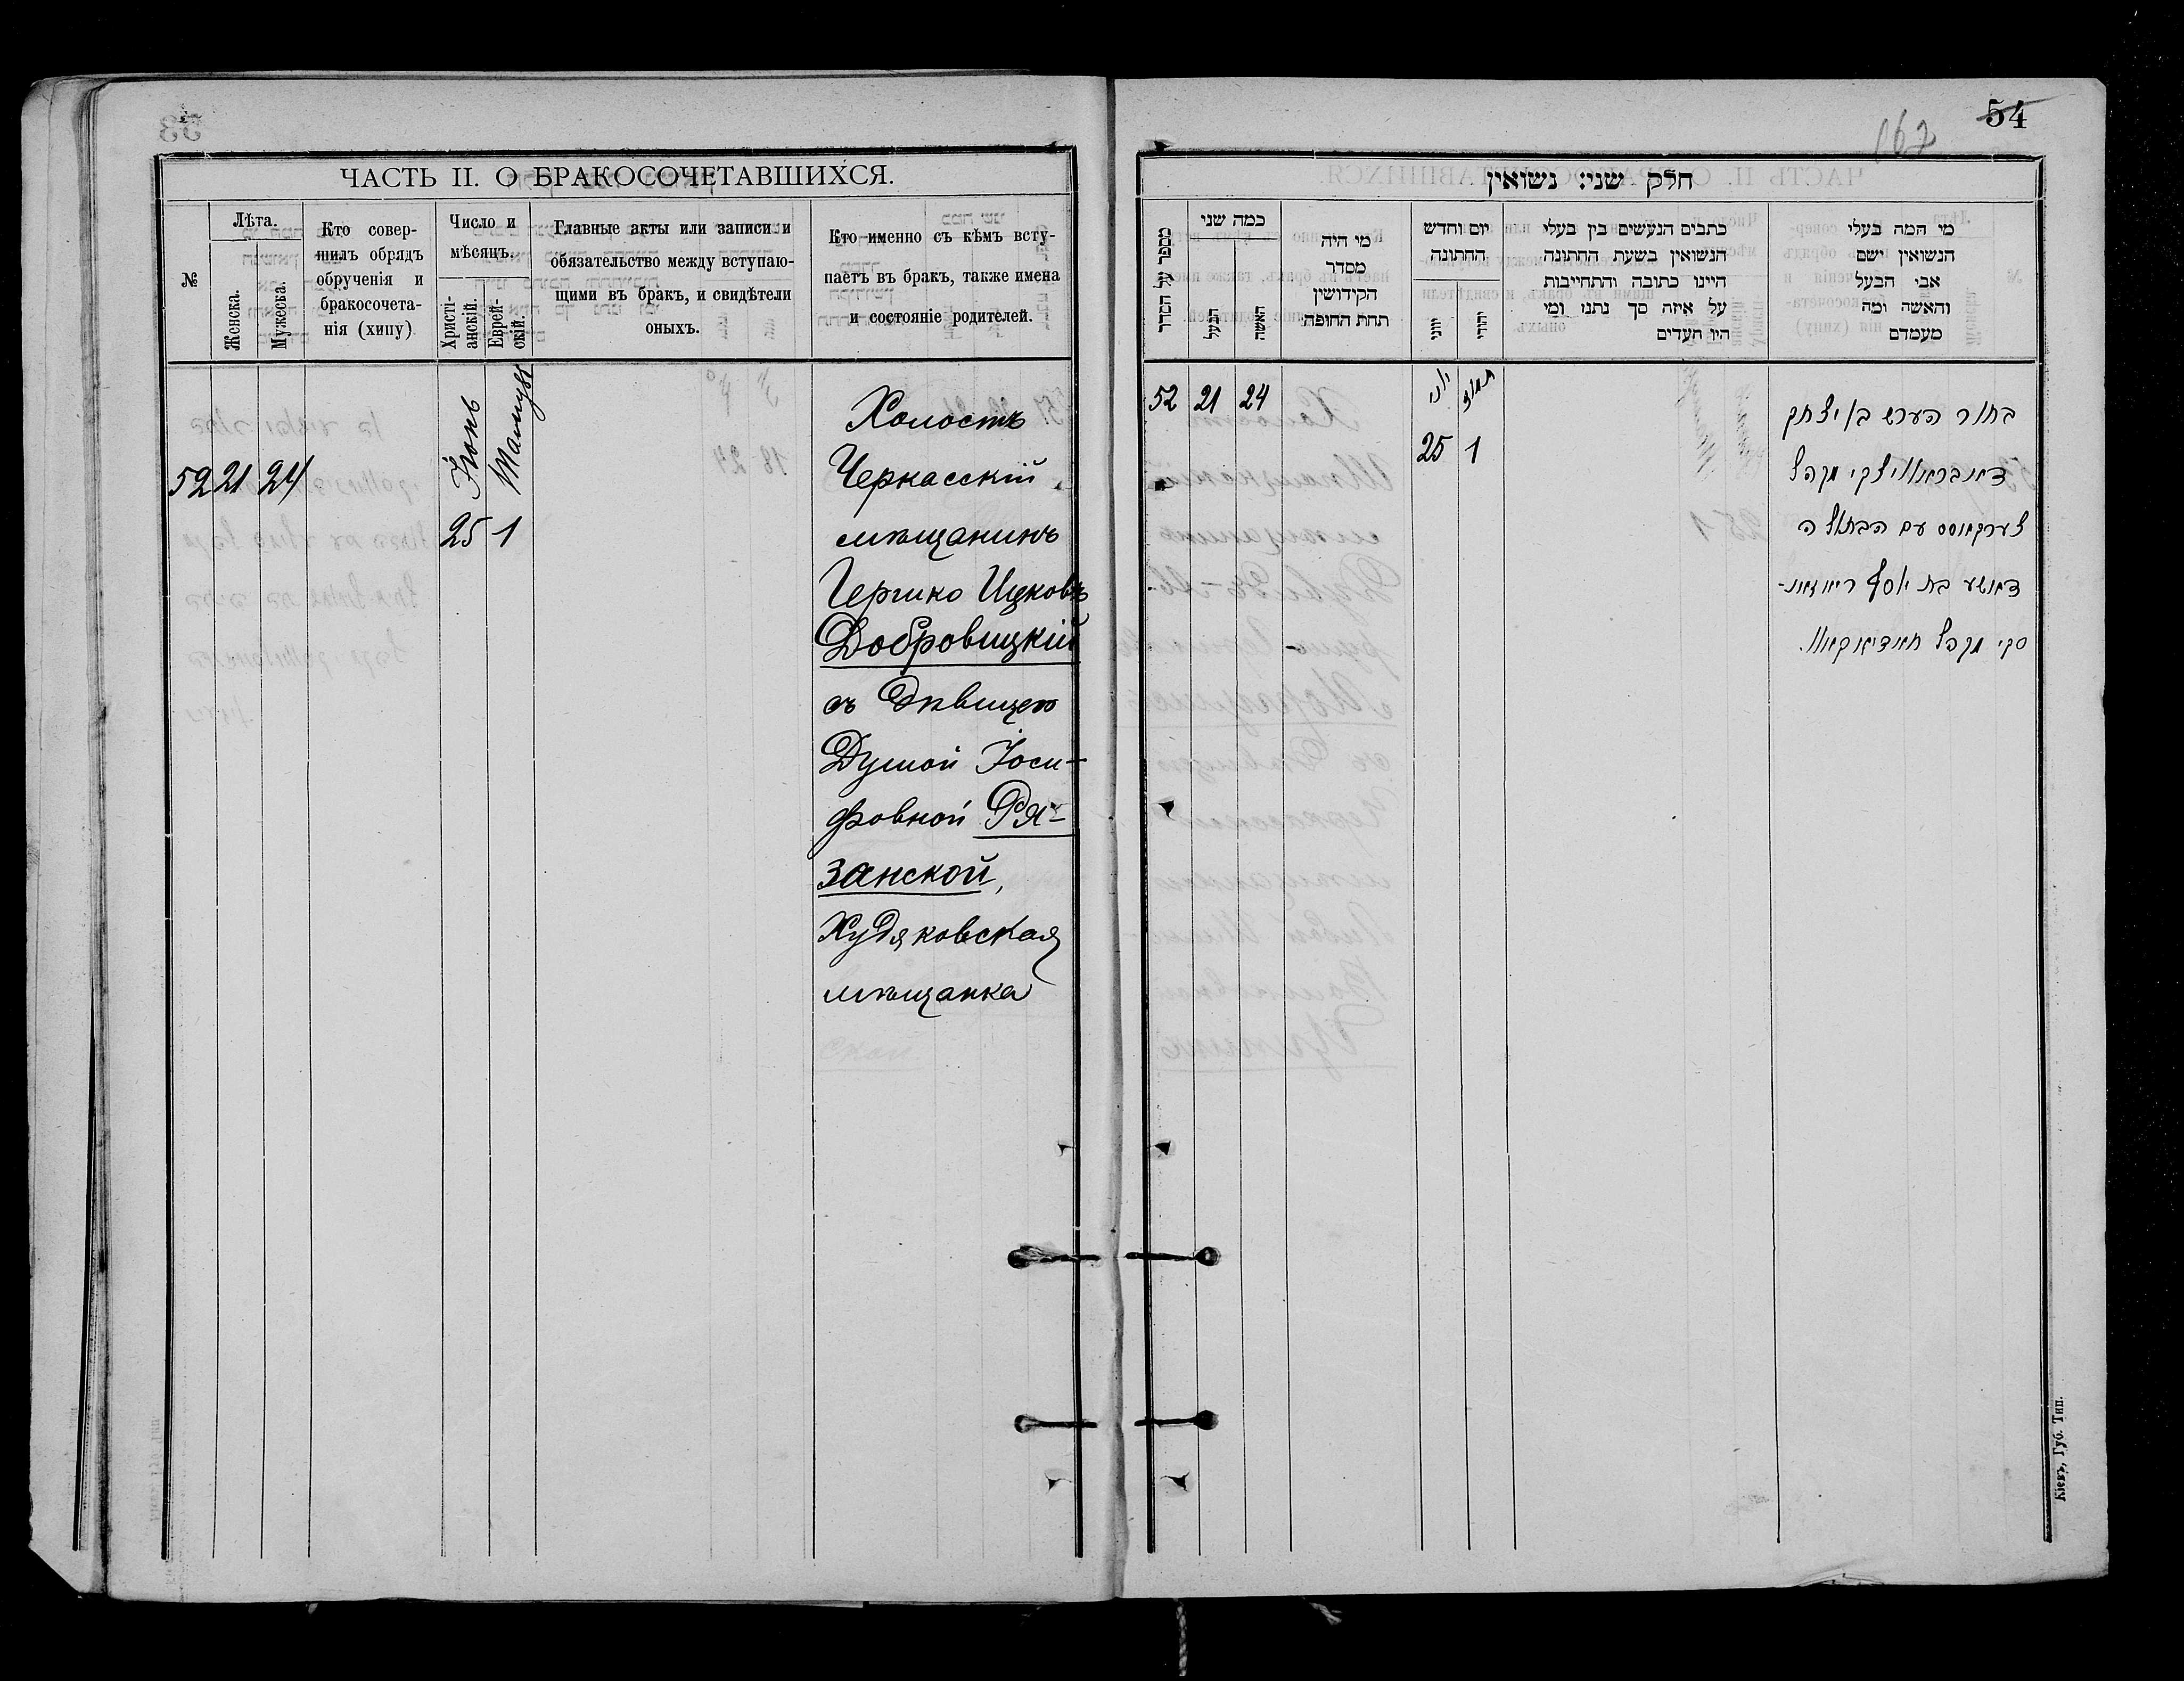 ЧАСТЬ II. О БРАКОСОЧЕТАВШИХСЯ.
№
Лѣта.
Женска.
Мужеска.
Кто совер-
шилъ обрядъ
обрученія и
бракосочета-
нія (хипу)
Число и
мѣсяцъ.
Христі-
анскій.
Еврей-
скій.
Главные акты или записи и
обязательство между вступаю-
щими въ бракъ, и свидѣтели
оныхъ.
Кто именно съ кѣмъ всту-
паетъ въ бракъ, также имена
и состояніе родителей.
52 21 24
Іюнь
25
Тамузъ
1
Холостъ
Черкасскій
мѣщанинъ
Гершко Ицковъ
Добровицкій
съ дѣвицею
Душой Іоси-
фовной Ря-
занской,
Худяковская
мѣщанка
54
167
חלק שני: נשואין
מספר על הסדר
כמה שני
הבעל
האשה
מי היה
מסדר
הקידושין
תחת החופה
יום וחדש
החתונה
יווני
יהודי
כתבים הנעשים בין בעלי
הנשואין בשעת החתונה
היינו כתובה והתחייבות
על איזה סך נתנו ומי
היו העדים
מי המה בעלי
הנשואין ושם
אבי הבעל
והאשה ומה
מעמדם
52 21 24
יוני
25
תמוז
1
בחור הערש בן יצחק
דאבראוויצקי מקהל
צערקאסס עם הבתולה
דאושע בת יוסף ריאזאנ-
סקי מקהל חאדיאקאוו.
Кіевъ, Губ. Тип.